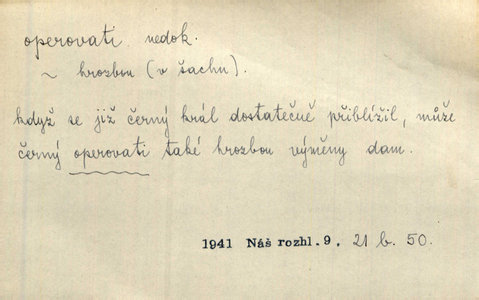 operovati nedok.
~ hrozbou (v šachu).
když se již černý král dostatečně přiblížil, může
černý operovati také hrozbou výměny dam.
1941 Náš rozhl. 9. 21 b. 50.